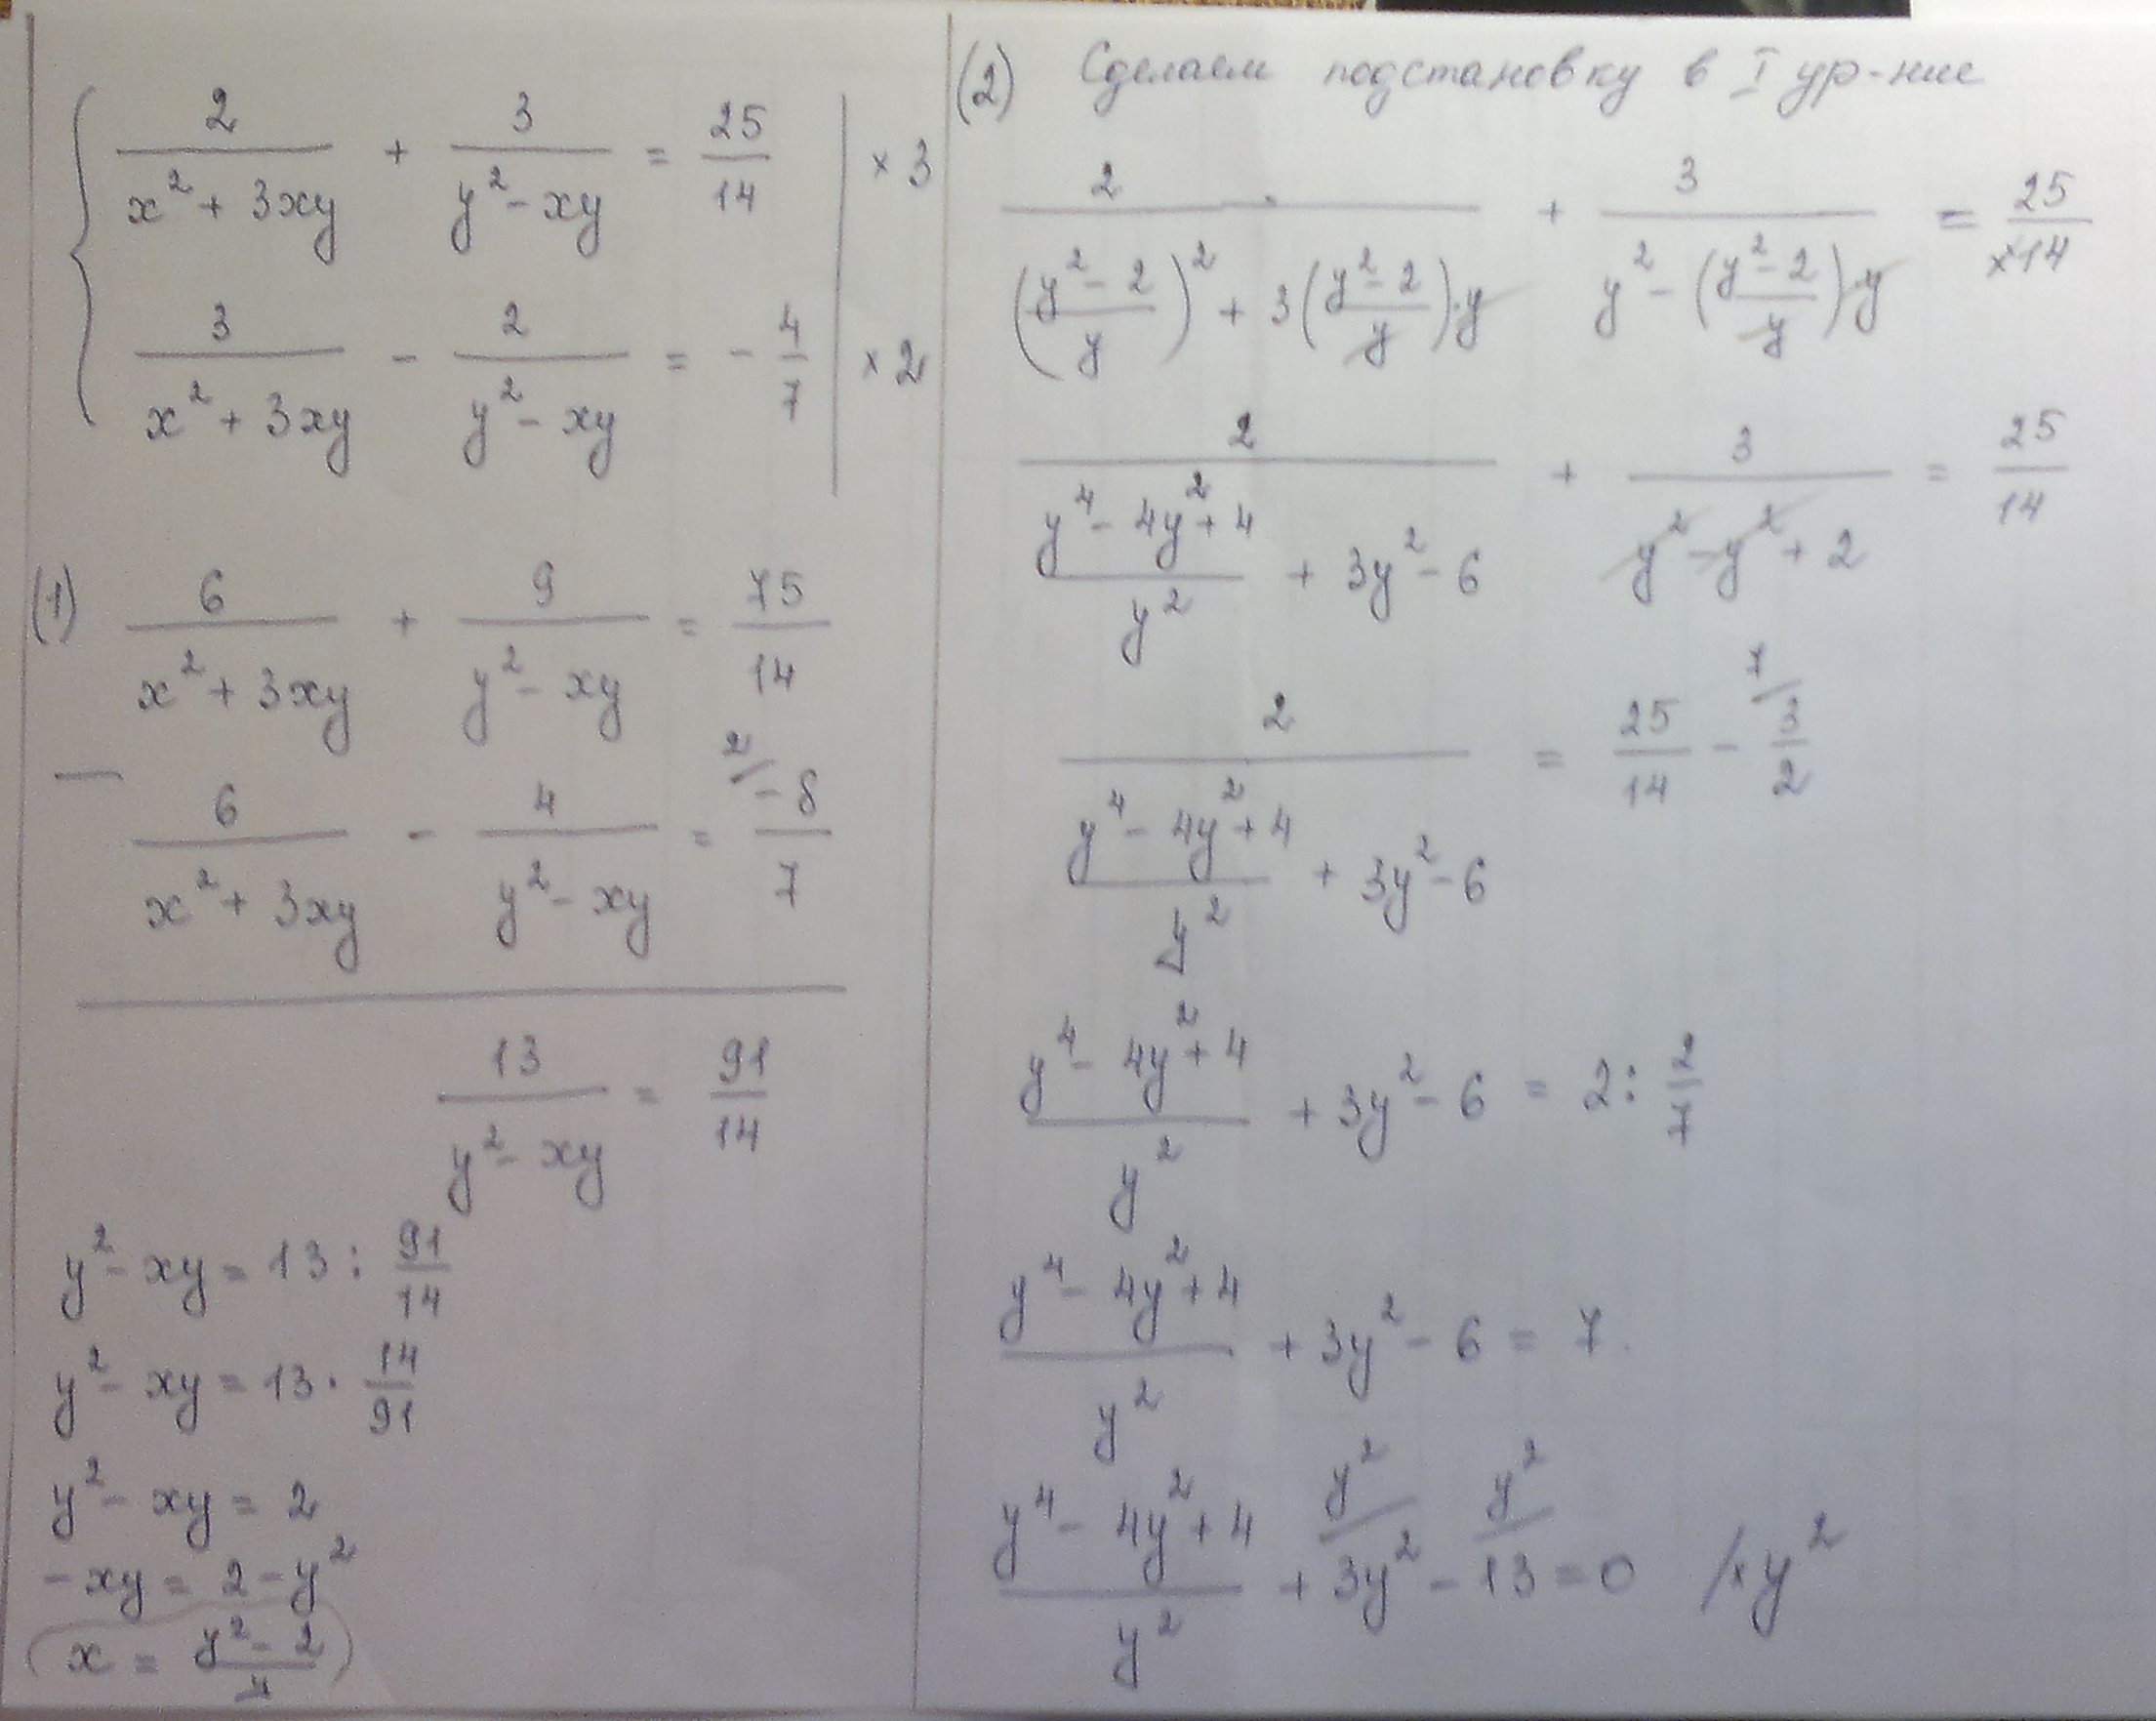 2/(x² + 3xy) + 3/(y² - xy) = 25/14 | × 3
3/(x² + 3xy) - 2/(y² - xy) = - 4/7 | × 2
(1) 6/(x² + 3xy) + 9/(y² - xy) = 75/14
— 6/(x² + 3xy) - 4/(y² - xy) = 2/ -8/7
13/(y² - xy) = 91/14
y² - xy = 13 : 91/14
y² - xy = 13 · 14/91
y² - xy = 2
- xy = 2 - y²
x = (y² - 2)/y
(2) Сделаем подстановку в I ур-ние
2/(((y² - 2)/y)² + 3((y² - 2)/y)·y) + 3/(y² - ((y² - 2)/y)·y) = 25/×14
2/((y⁴ - 4y² + 4)/y² + 3y² - 6) + 3/(y² - y² + 2) = 25/14
2/((y⁴ - 4y² + 4)/y² + 3y² - 6) = 25/14 - 7/ 3/2
(y⁴ - 4y² + 4)/y² + 3y² - 6 = 2 : 2/7
(y⁴ - 4y² + 4)/y² + 3y² - 6 = 7.
(y⁴ - 4y² + 4)/y² + y²/ 3y² - y²/ 13 = 0 /× y²